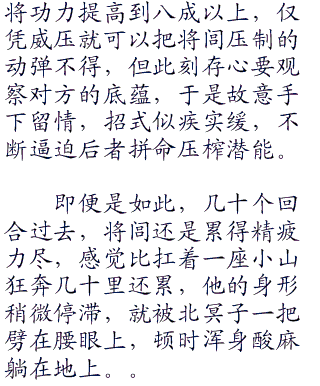 将功力提高到八成以上，仅
凭威压就可以把将闾压制的
动弹不得，但此刻存心要观
察对方的底蕴，于是故意手
下留情，招式似疾实缓，不
断逼迫后者拼命压榨潜能。
即便是如此，几十个回
合过去，将闾还是累得精疲
力尽，感觉比扛着一座小山
狂奔几十里还累，他的身形
稍微停滞，就被北冥子一把
劈在腰眼上，顿时浑身酸麻
躺在地上。。